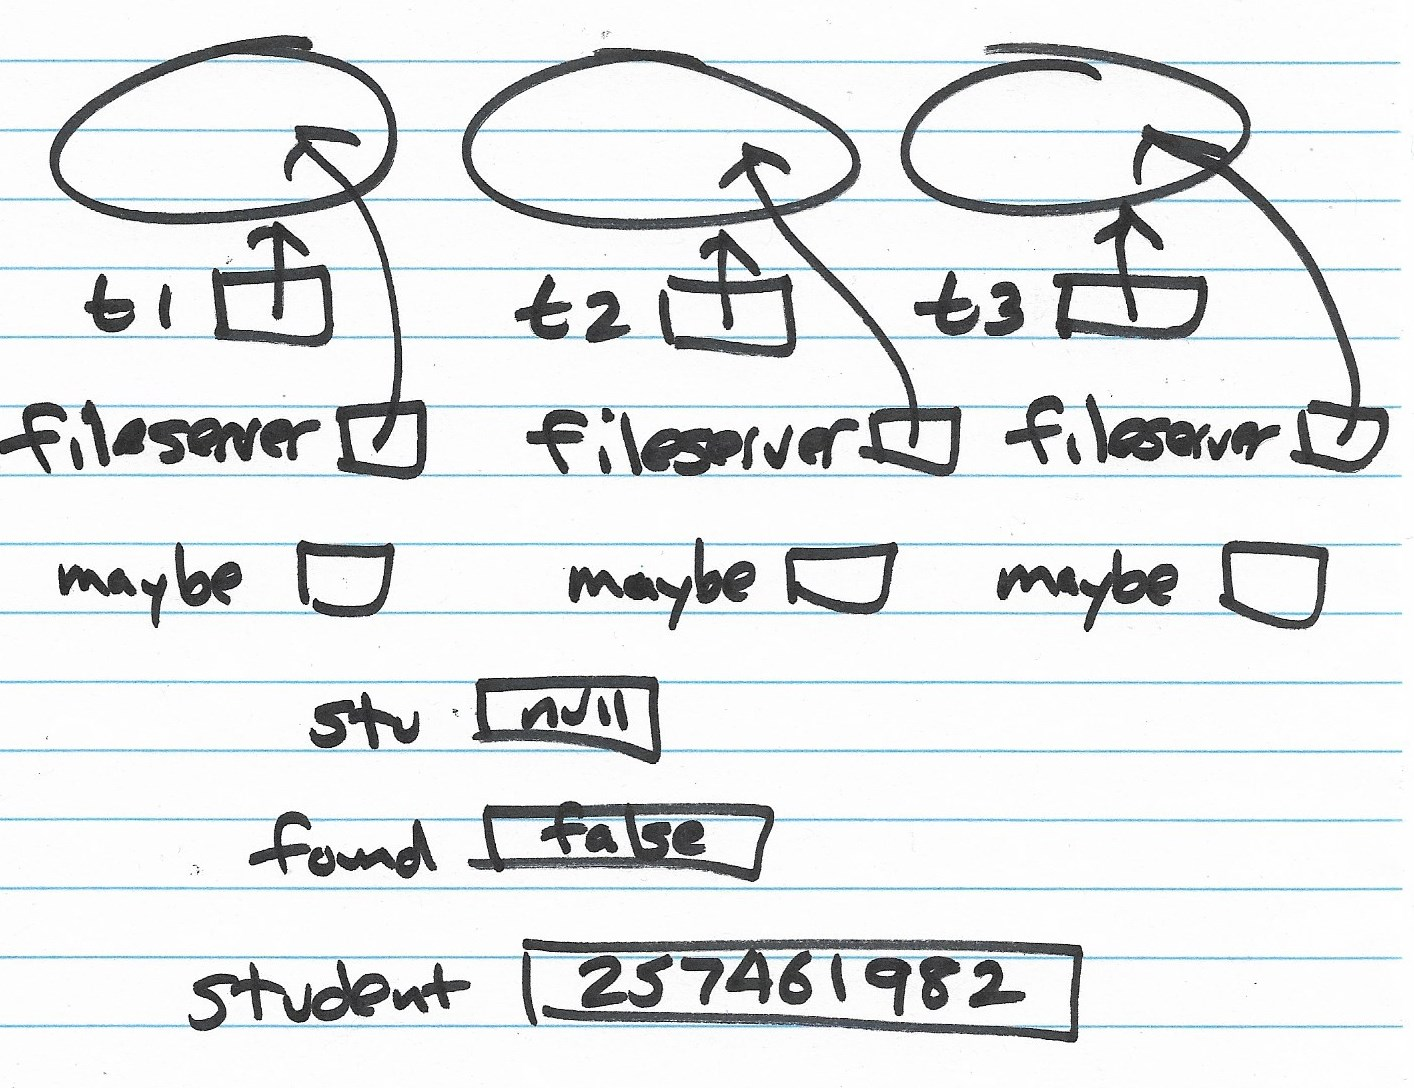 t1 t2 t3
fileserver fileserver fileserver
maybe maybe maybe
stu null
found false
student 257461982